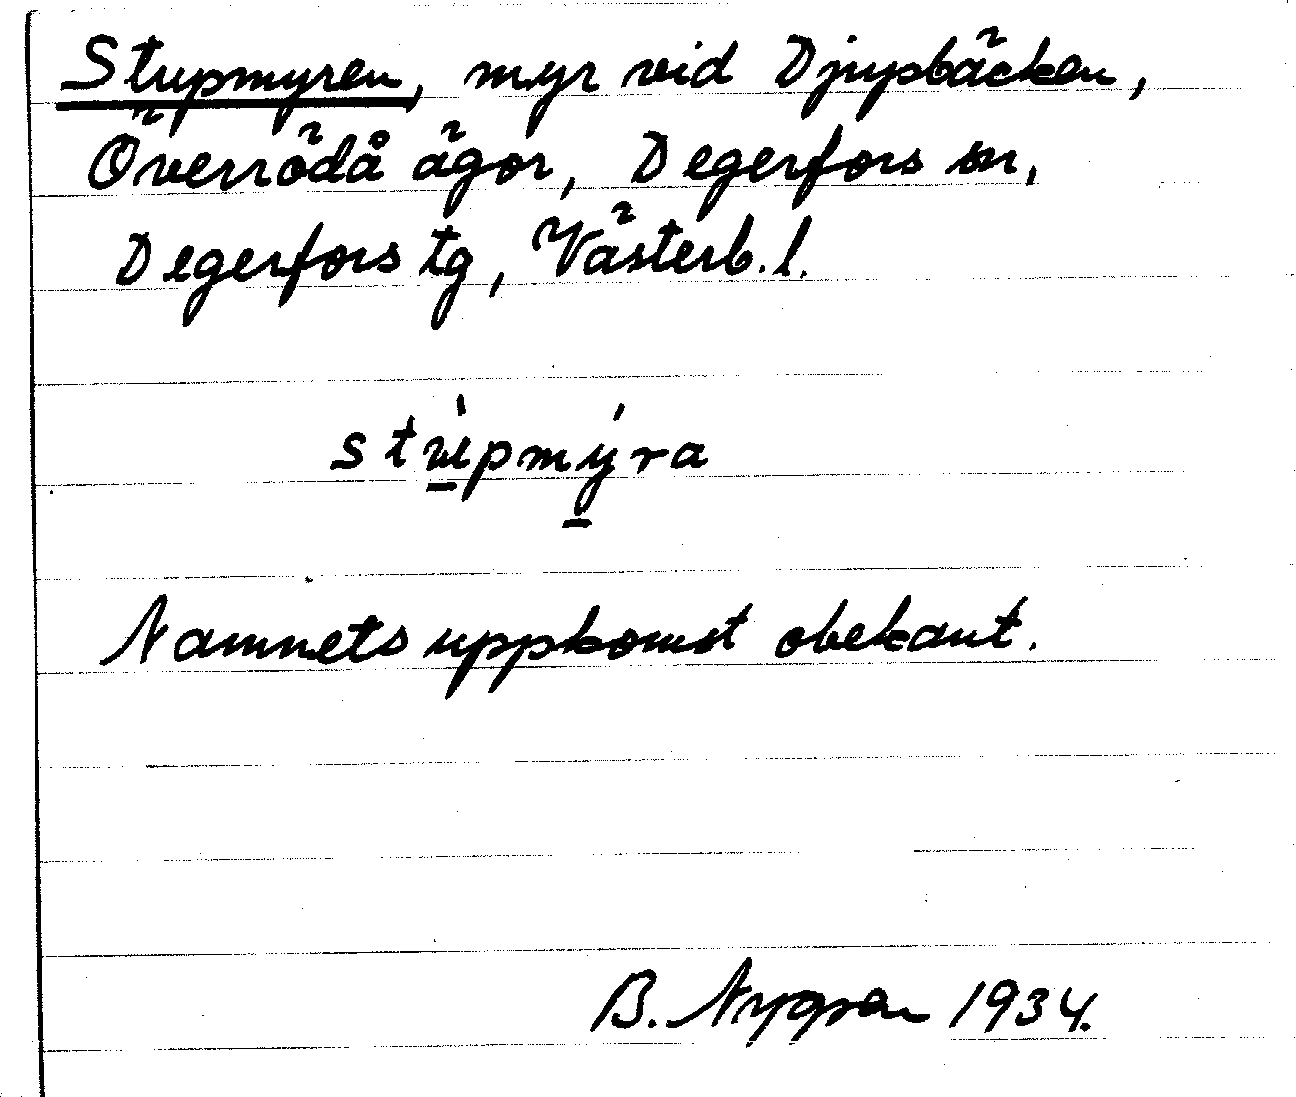 Stupmyren, myr vid Djupbäcken,
Överrödå ägor, Degerfors sn,
Degerfors tg, Västerb. l.
stu̲̍pmý̲ra
Namnets uppkomst obekant.
B. Nygren 1934.